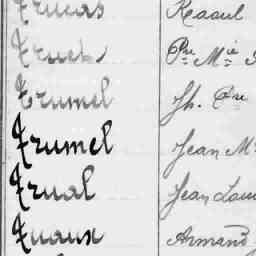 Trucas Raoul
Truel Pre Mie
Trumel Jh. Pre
Trumel Jean M
Trual Jean Lou
Tuaux Armand